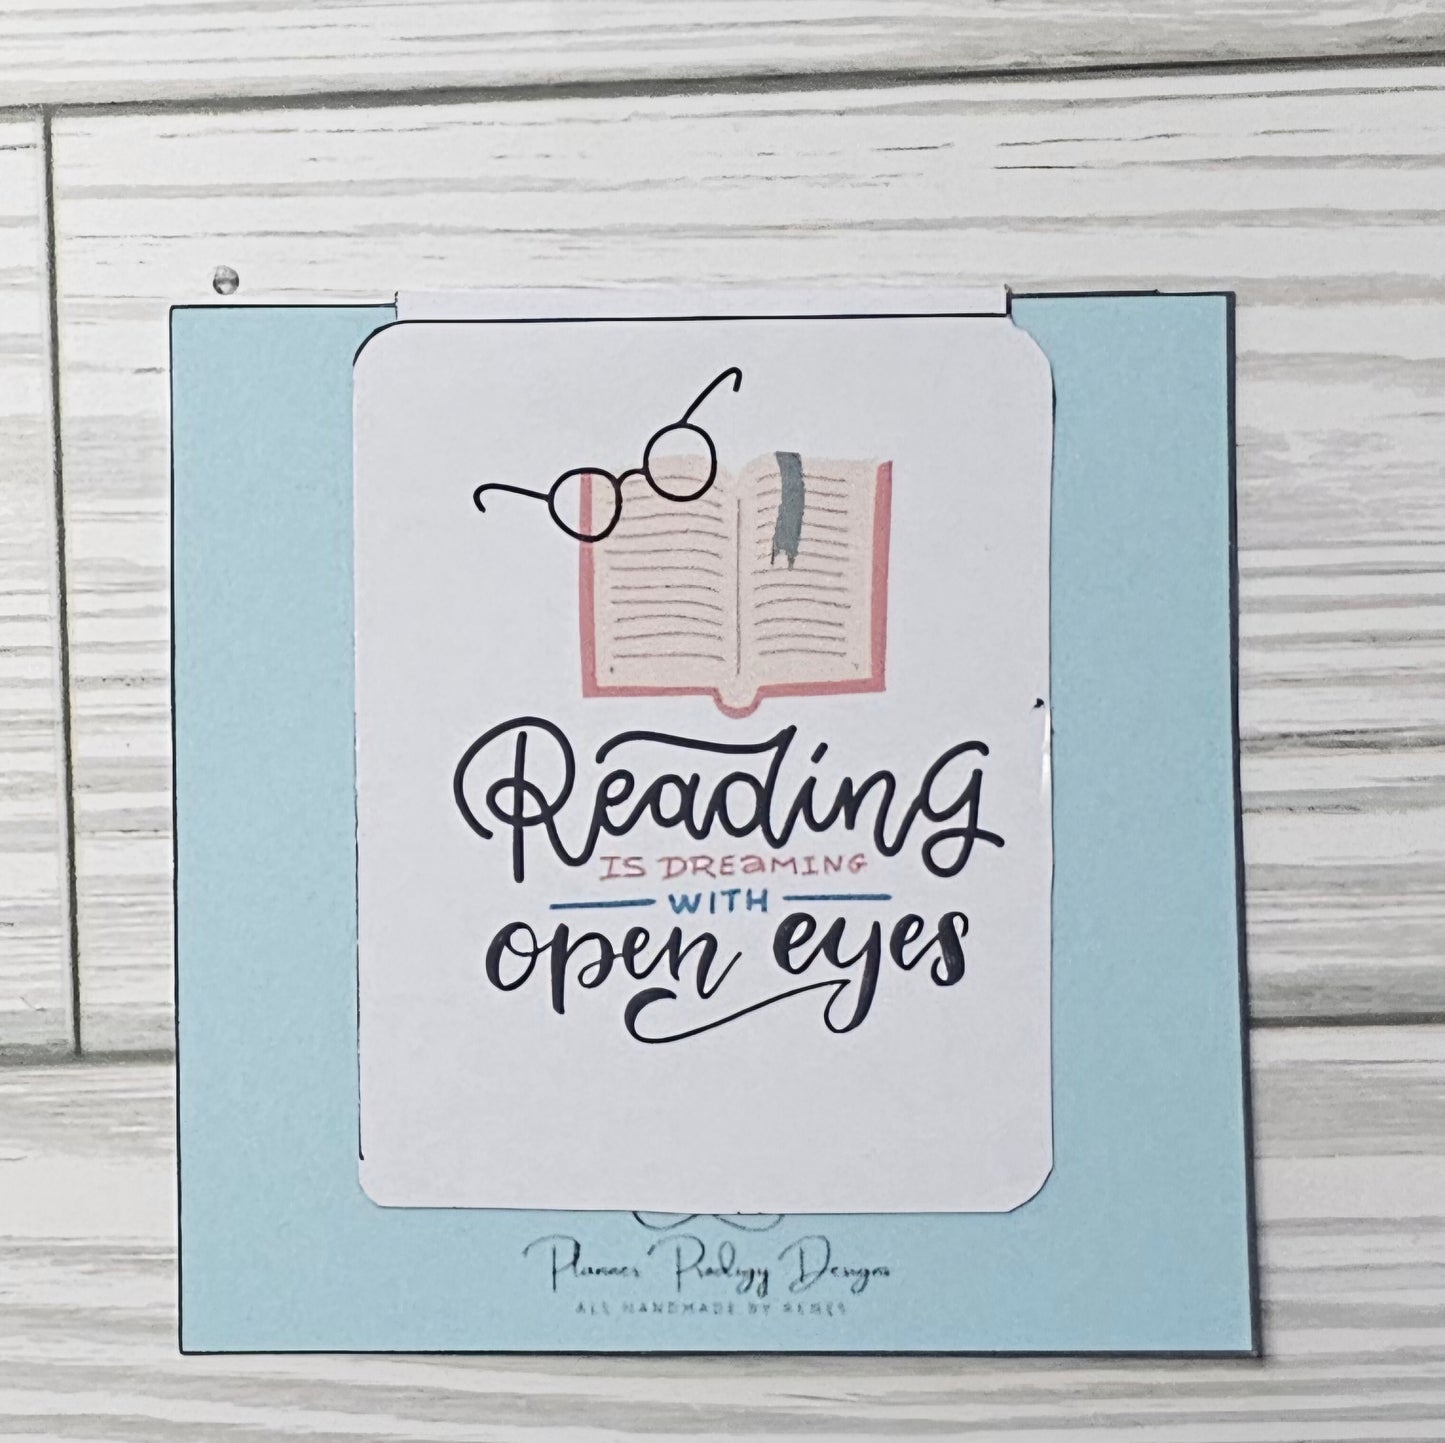 Reading
IS DREAMING
WITH
open eyes
Planner Prodigy Designs
ALL HANDMADE BY RENEE